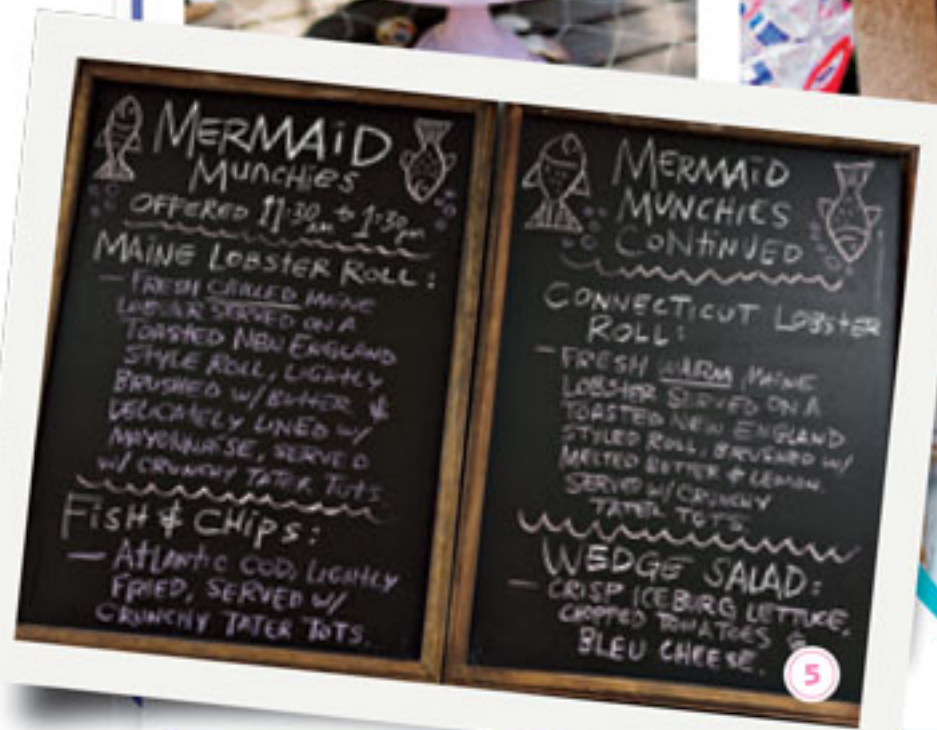 MERMAiD
Munchies
OFFERED 11:30am to 1:30pm
MAINE LOBSTER ROLL:
— FRESH CHILLED MAINE
LOBSTER SERVED ON A
TOASTED NEW ENGLAND
STYLE ROLL, LIGHTLY
BRUSHED W/ BUTTER &
DELICATELY LINED W/
MAYONNAISE, SERVED
W/ CRUNCHY TATER TOTS
FisH & CHips:
— Atlantic COD, LIGHTLY
FRIED, SERVED W/
CRUNCHY TATER TOTS.
MERMAiD
MUNCHIES
CONTiNUED
CONNECTICUT LOBSTER
ROLL:
— FRESH WARM MAINE
LOBSTER SERVED ON A
TOASTED NEW ENGLAND
STYLED ROLL, BRUSHED W/
MELTED BUTTER & LEMON.
SERVED W/ CRUNCHY
TATER TOTS
WEDGE SALAD:
— CRISP ICEBURG LETTUCE,
CHOPPED TOMATOES &
BLEU CHEESE.
5